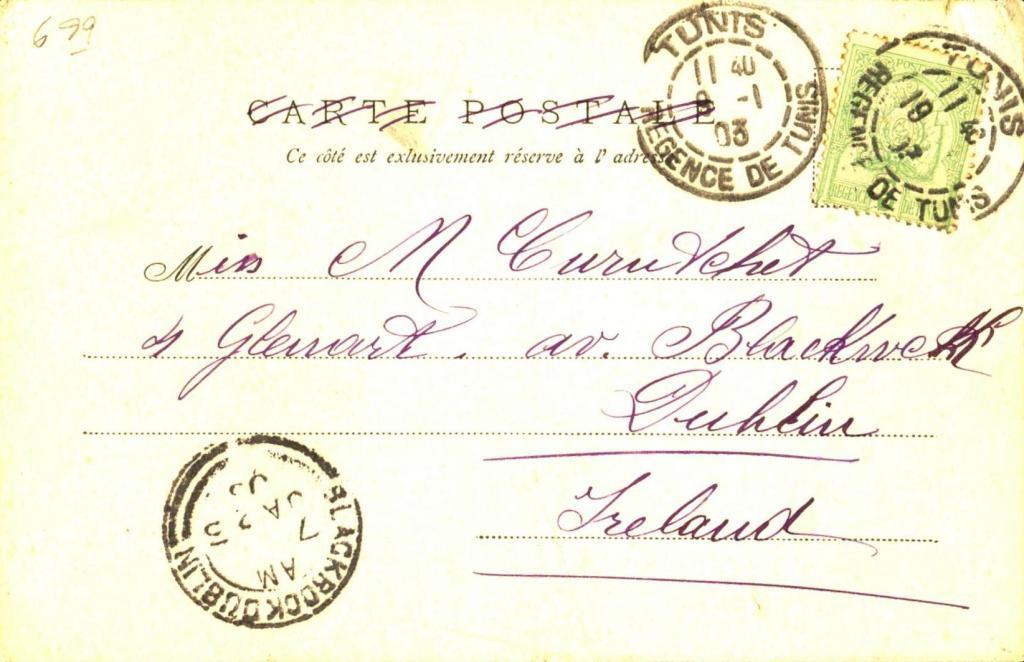 699
TUNIS
11 40
9 -1
03
REGENCE DE TUNIS
TUNIS
11 40
19
03
REGENCE DE TUNIS
POSTE
REGENCE DE
CARTE POSTALE
Ce côté est exlusivement réserve à l'adresse
Miss M Curutchet
4 Glenart. av. Blackrock
Dublin
Ireland
BLACKROCK DUBLIN
AM
7
JA
03